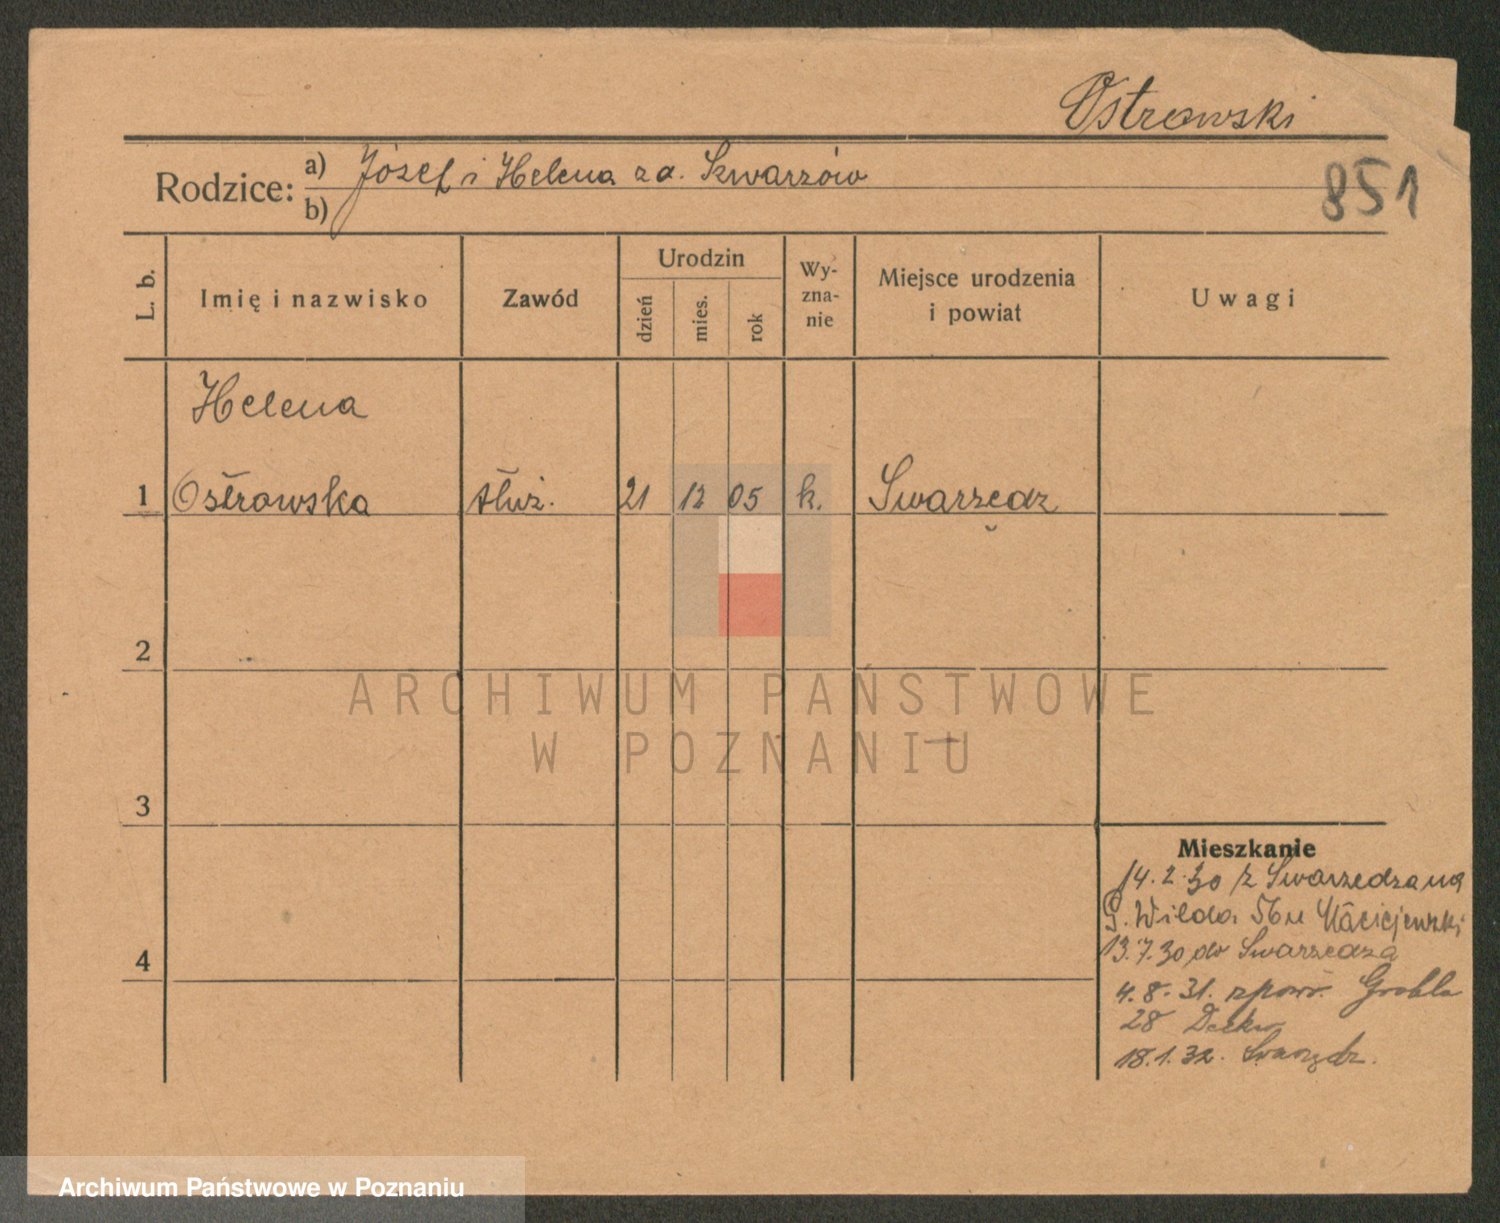 Ostrowski
Rodzice: a) Józef i Helena za. Skwarzów
b)
851
L. b.
Imię i nazwisko
Zawód
Urodzin
dzień
mies.
rok
Wy-
zna-
nie
Miejsce urodzenia
i powiat
Uwagi
Helena
1 Ostrowska służ. 21 12 05 k. Swarzędz
2
ARCHIWUM PAŃSTWOWE
W POZNANIU
3
Mieszkanie
14.2.30 z Swarzedza na
G. Wilda 56 u Maciejewski
4
13.7.30 do Swarzedza
4.8.31. zpowr. Grobla
28
18.1.32. Swarzędz.
Archiwum Państwowe w Poznaniu